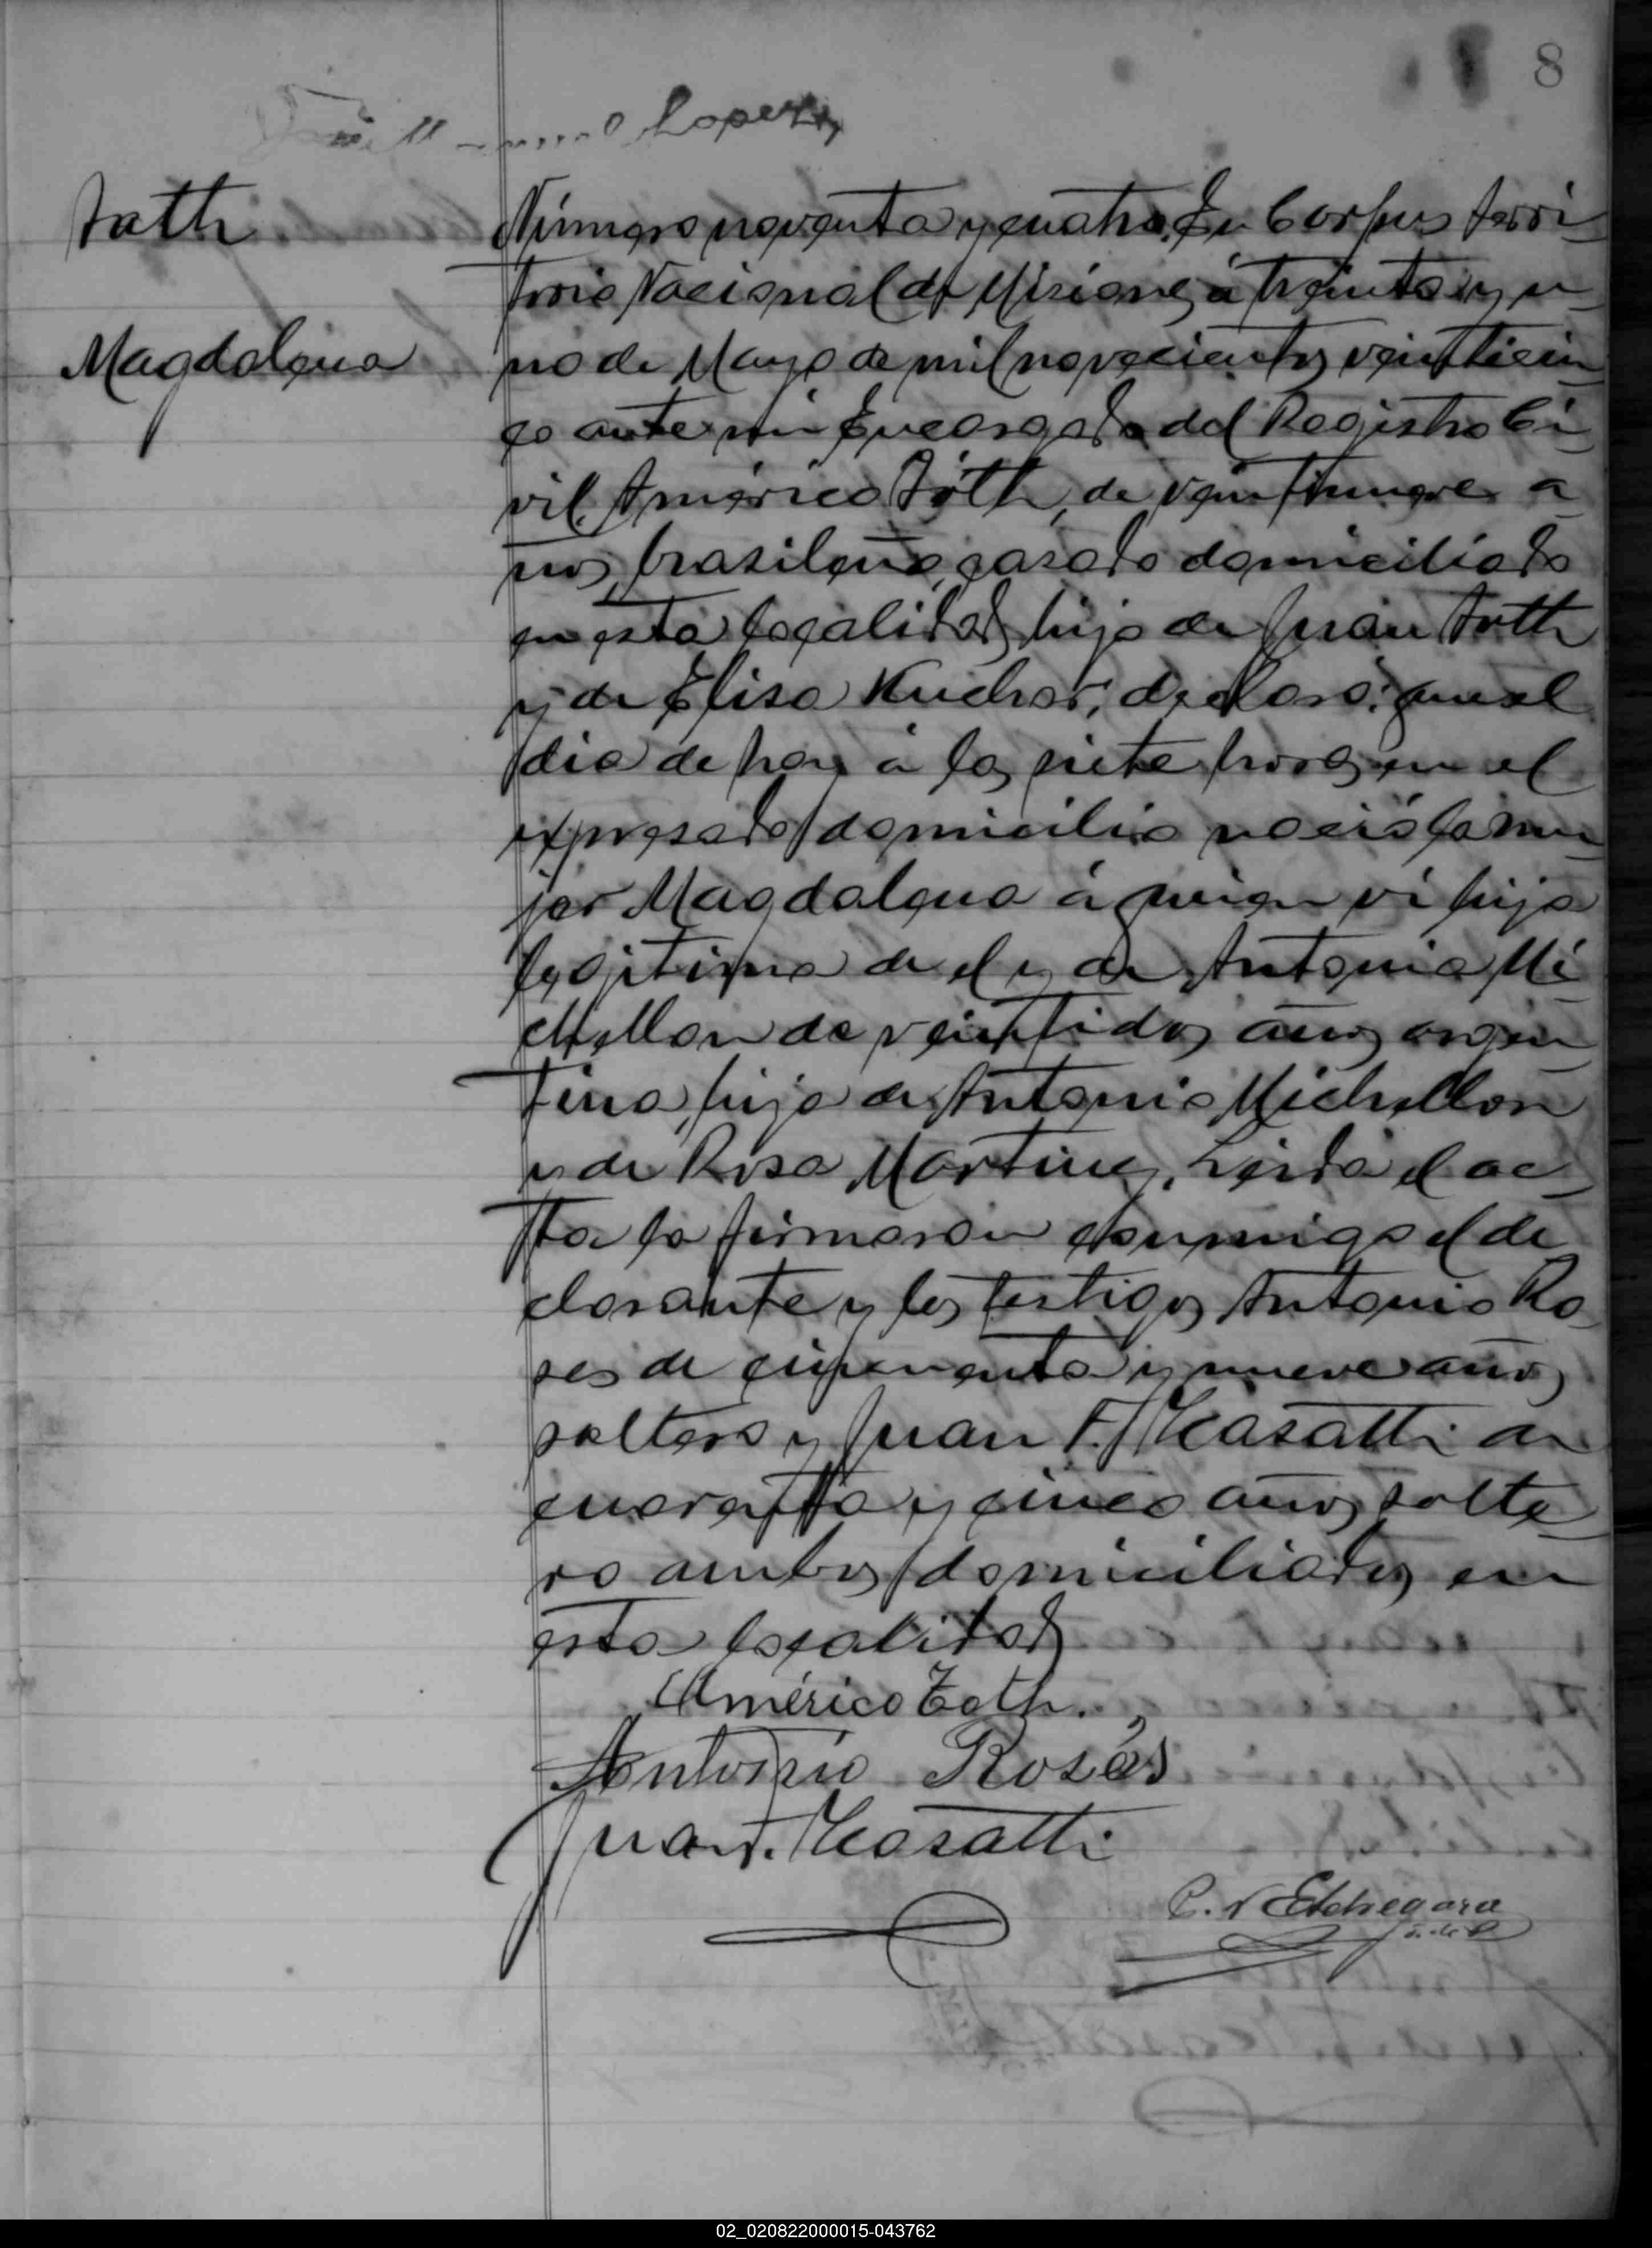 8
Lopez
Toth
Magdalena
Número noventa y cuatro. En Corpus Terri-
torio Nacional de Misiones, á treinta y u-
no de Mayo de mil novecientos veinticin-
co ante mi Encargado del Registro Ci-
vil, Américo Tóth, de veintinueve a-
ños, brasileño, casado domiciliado
en esta localidad, hijo de Juan Toth
y de Elisa Kuchar, declaró: que el
dia de hoy á las siete horas en el
expresado domicilio nació la mu-
jer Magdalena á quien ví hija
legitima de el y de Antonia Mi-
chellon de veintidos años argen-
tina, hija de Antonio Michellon
y de Rosa Martinez. Leida el ac-
ta la firmaron conmigo el de-
clarante y los testigos Antonio Ro-
ses de cincuenta y nueve años
soltero y Juan F. Casatti de
cuarenta y cinco años, solte-
ro ambos domiciliados en
esta localidad
Américo Toth.
Antonio Rosés
Juan F. Casatti
C. N Etchegara
02_020822000015-043762